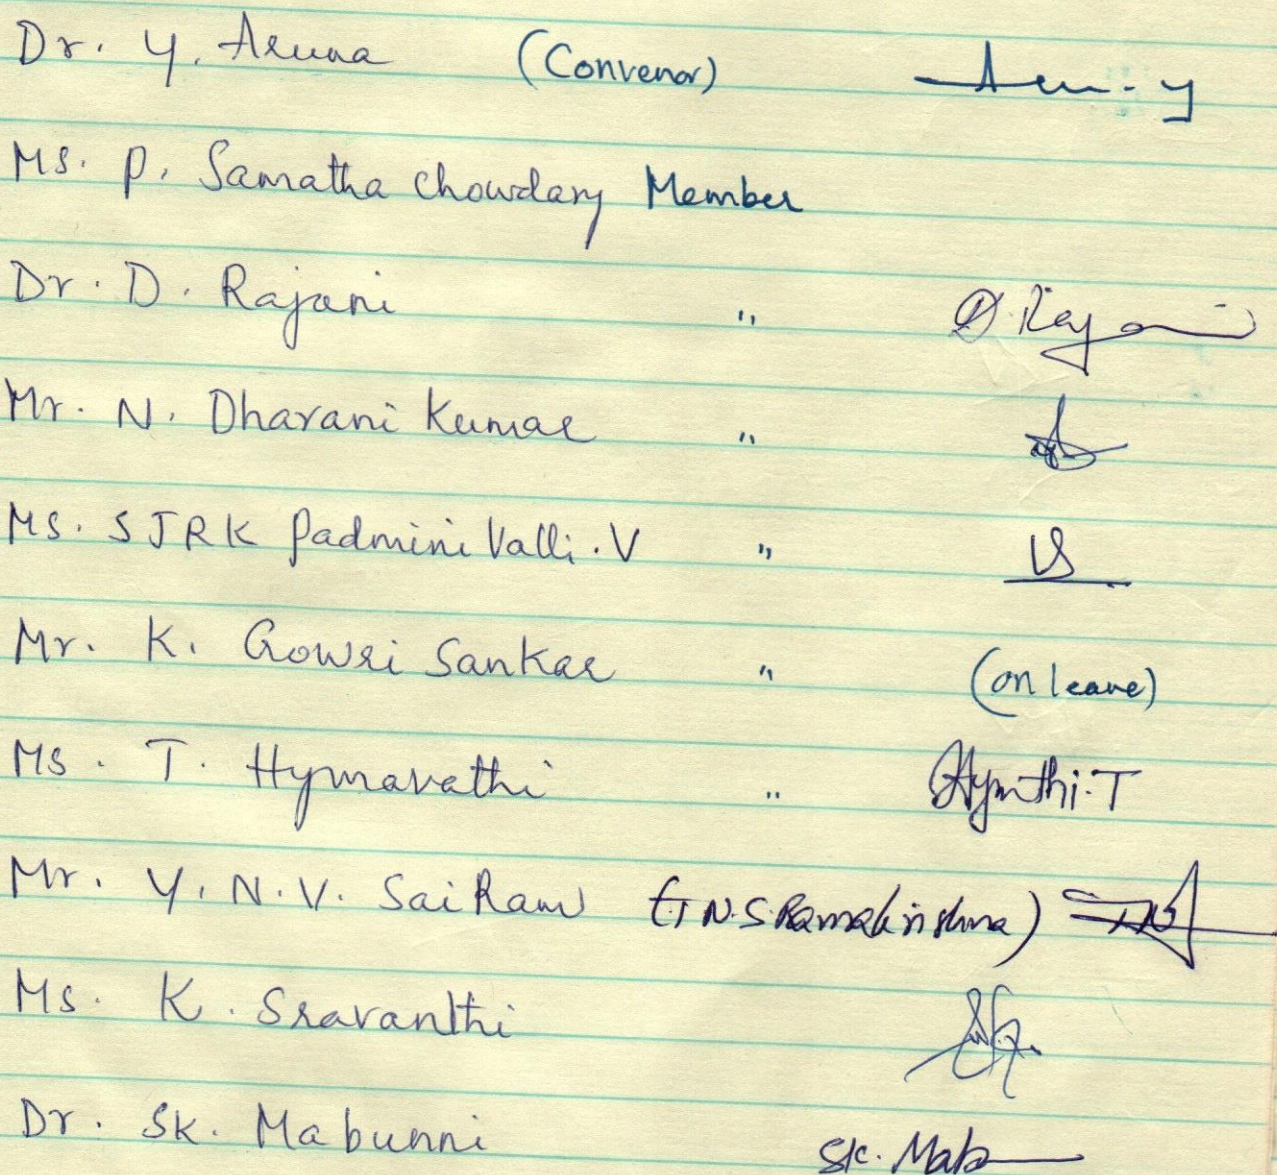 Dr. Y. Aruna (Convenor) Aru.Y
Ms. P. Samatha Chowdary Member
Dr. D. Rajani " D. Rajani
Mr. N. Dharani Kumar "
Ms. SJRK Padmini Valli . V "
Mr. K. Gowri Sankar " (on leave)
Ms. T. Hymavathi " Hymthi.T
Mr. Y. N. V. Sai Ram (T N.S Ramakrishna)
Ms. K. Sravanthi
Dr. SK. Mabunni SK. Mab